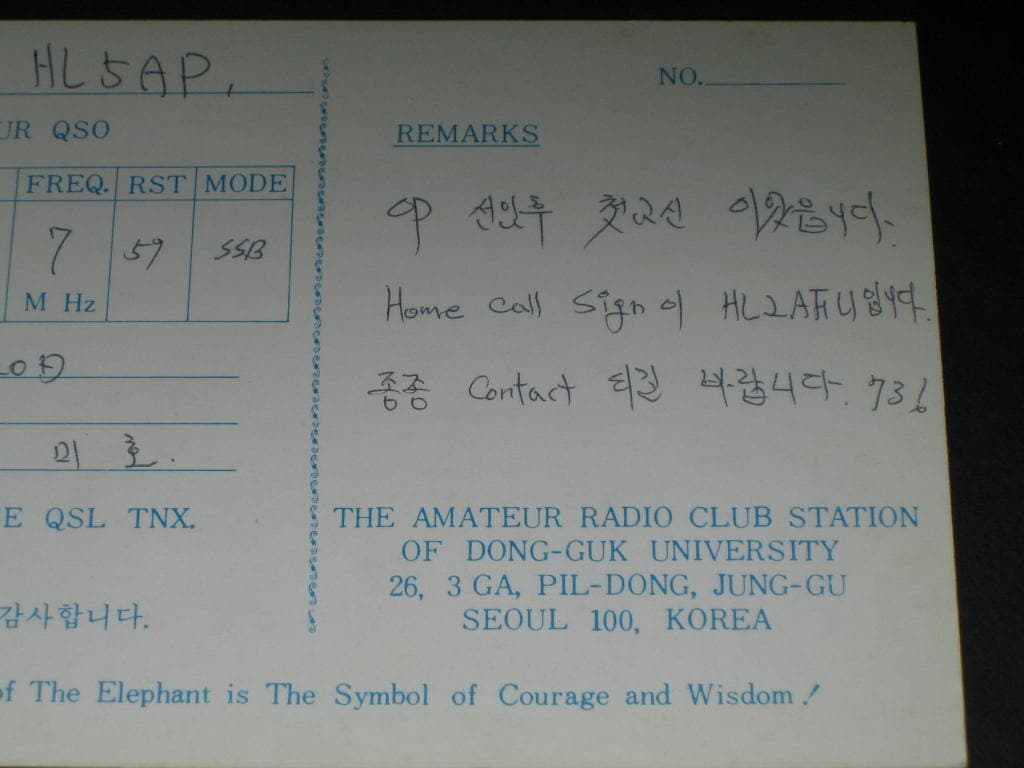 HL5AP,
NO.
UR QSO
REMARKS
FREQ. RST MODE
7 59 SSB
M Hz
OP 선임후 첫교신 이였읍니다.
Home Call Sign이 입니다.
종종 Contact 되길 바랍니다. 73
미 호.
E QSL TNX.
THE AMATEUR RADIO CLUB STATION
OF DONG-GUK UNIVERSITY
26, 3 GA, PIL-DONG, JUNG-GU
SEOUL 100, KOREA
감사합니다.
of The Elephant is The Symbol of Courage and Wisdom!